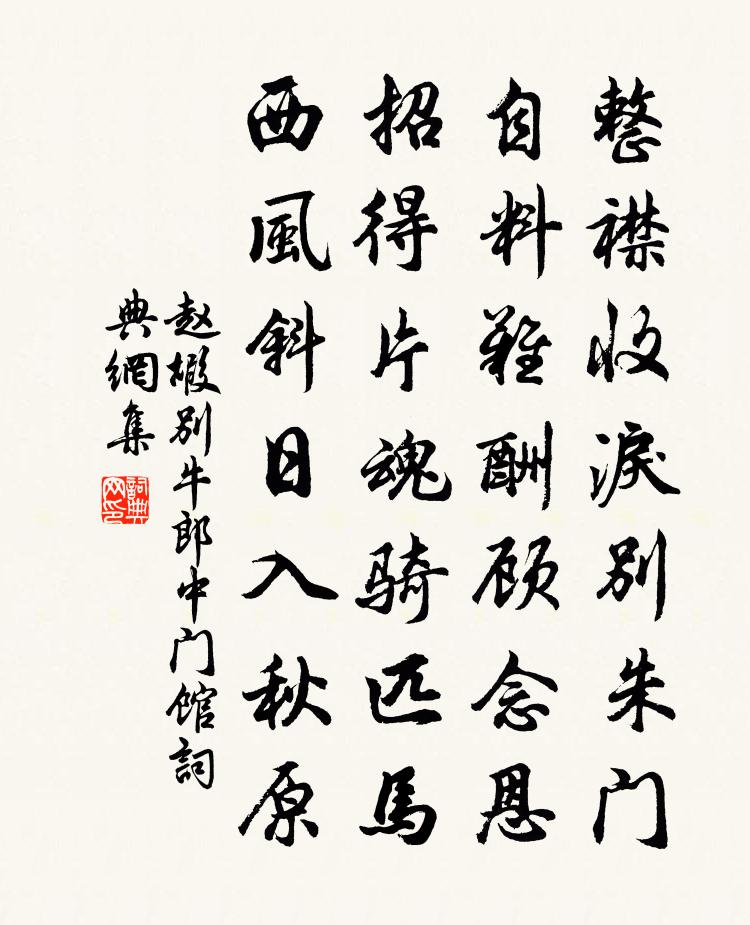 整襟收淚別朱门
自料難酬顾念恩
招得片魂骑匹馬
西風斜日入秋原
赵嘏別牛郎中门馆詞
典網集
詞典网印